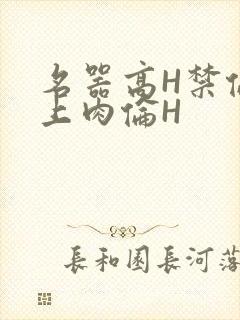 名器高H禁伦
上肉倫H
長和園長河落